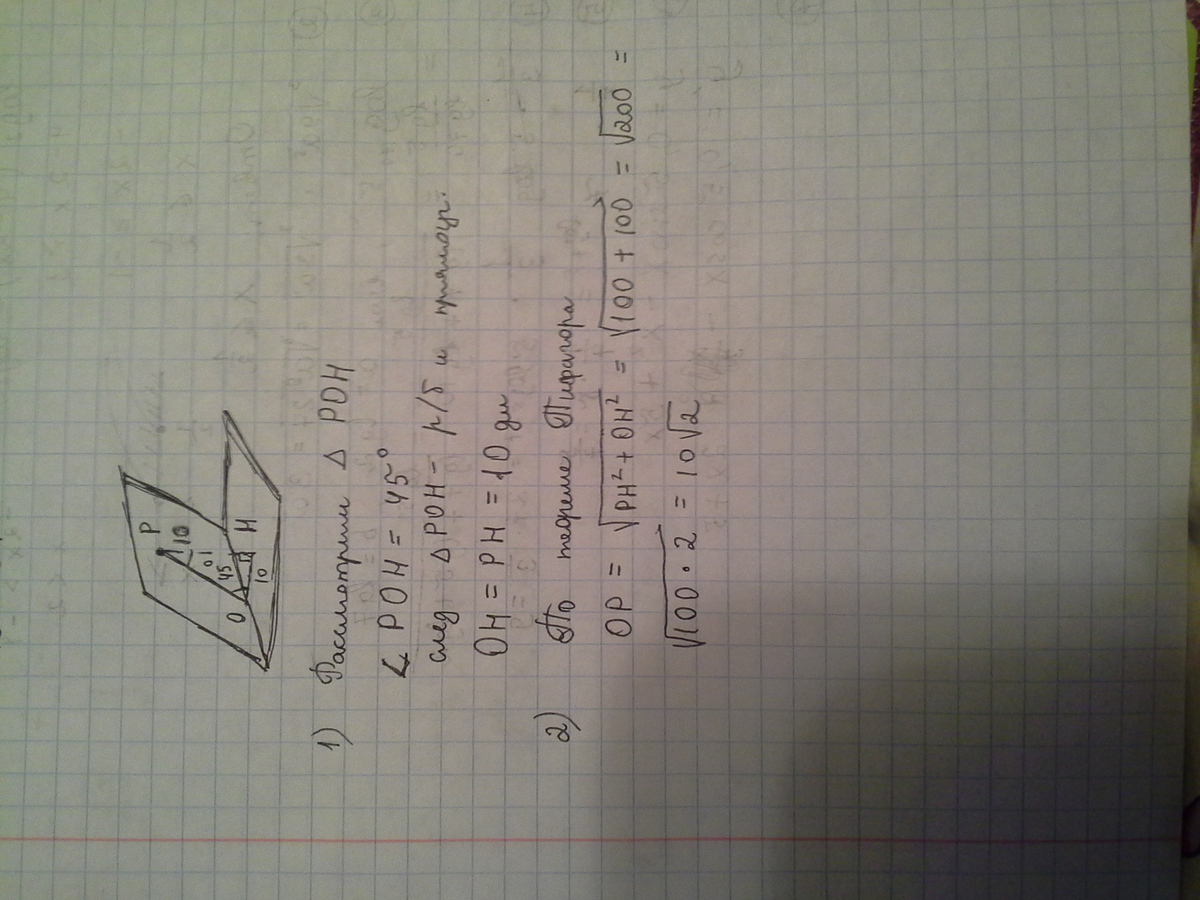 P
10
O
45
10
H
1) Рассмотрим Δ POH
∠ POH = 45°
след Δ POH - р/б и прямоуг.
OH = PH = 10 дм
2) По теореме Пифагора
OP = √PH² + OH² = √100 + 100 = √200 =
√100 · 2 = 10√2